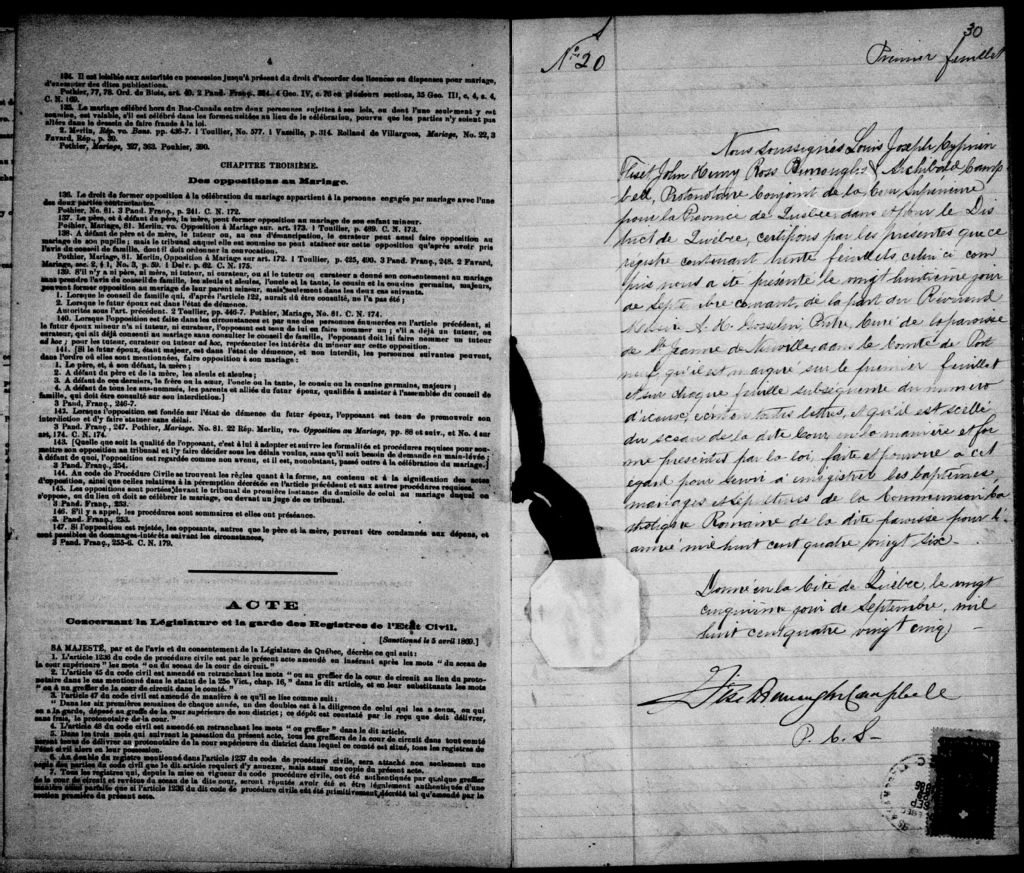 4
134. Il est loisible aux autorités en possession jusqu'à présent du droit d'accorder des licences ou dispenses pour mariage,
d'exempter des dites publications.
Pothier, 77, 78. Ord. de Blois, art. 40. 2 Pand. Franç. 4 Geo. IV, c. en plusieurs sections, 35 Geo. III, c. 4, s. 4,
C. N. 169.
135. Le mariage célébré hors du Bas-Canada entre deux personnes sujettes à ses lois, ou dont l'une seulement y est
soumise, est valable, s'il est célébré dans les formes usitées au lieu de la célébration, pourvu que les parties n'y soient pas
allées dans le dessein de faire fraude à la loi.
2. Merlin, Rép. vo. Bans. pp. 436-7. 1 Toullier, No. 577. 1 Vazille, p. 314. Rolland de Villargues, Mariage, No. 22, 3
Favard, Rép., p. 30.
Pothier, Mariage, 327, 363. Pouhier, 390.
CHAPITRE TROISIÈME.
Des oppositions au Mariage.
136. Le droit de former opposition à la célébration du mariage appartient à la personne engagée par mariage avec l'une
des deux parties contractantes.
Pothier, No. 81. 3 Pand. Franç., p. 241. C. N. 172.
137. Le père, et à défaut du père, la mère, peut former opposition au mariage de son enfant mineur.
Pothier, Mariage, 81. Merlin. vo. Opposition à Mariage sur. art. 173. 1 Toullier, p. 489. C. N. 173.
138. A défaut de père et de mère, le tuteur, et, au cas d'émancipation, le curateur peut aussi faire opposition au
mariage de son pupille; mais le tribunal auquel elle est soumise ne peut statuer sur cette opposition qu'après avoir pris
l'avis du conseil de famille, dont il doit ordonner la convocation.
Pothier, Mariage, 81. Merlin, Opposition à Mariage sur art. 172. 1 Toullier, p. 425, 490. 3 Pand. Franç., 248. 2 Favard,
Mariage, sec. 2, § 1, No. 3, p. 59. 1 Delv. p. 62. C. N. 175.
139. S'il n'y a ni père, ni mère, ni tuteur, ni curateur, ou si le tuteur ou curateur a donné son consentement au mariage
sans prendre l'avis du conseil de famille, les aïeuls et aïeules, l'oncle et la tante, le cousin et la cousine germains, majeurs,
peuvent former opposition au mariage de leur parent mineur, mais seulement dans les deux cas suivants.
1. Lorsque le conseil de famille qui, d'après l'article 122, aurait dû être consulté, ne l'a pas été;
2. Lorsque le futur époux est dans l'état de démence.
Autorités sous l'art. précédent. 2 Toullier, pp. 446-7. Pothier, Mariage, No. 81. C. N. 174.
140. Lorsque opposition est faite dans les circonstances et par une des personnes énumérées en l'article précédent, si
le futur époux mineur n'a ni tuteur, ni curateur, l'opposant est tenu de lui en faire nommer un; s'il a déjà un tuteur, ou
curateur, qui ait déjà consenti au mariage sans consulter le conseil de famille, l'opposant doit lui faire nommer un tuteur
ad hoc; pour les tuteur, curateur ou tuteur ad hoc, représenter les intérêts du mineur sur cette opposition.
141. [Si le futur époux, étant majeur, est dans l'état de démence, et non interdit, les personnes suivantes peuvent,
dans l'ordre où elles sont mentionnées, faire opposition à son mariage:
1. Le père, et, à son défaut, la mère;
2. A défaut du père et de la mère, les aïeuls et aïeules;
3. A défaut de ces derniers, le frère ou la sœur, l'oncle ou la tante, le cousin ou la cousine germains, majeurs;
4. A défaut de tous les sus-nommés, les parents et alliés du futur époux, qualifiés à assister à l'assemblée du conseil de
famille, qui doit être consulté sur son interdiction.]
3 Pand. Franç., 246-7.
142. Lorsque l'opposition est fondée sur l'état de démence du futur époux, l'opposant est tenu de promouvoir son
interdiction et d'y faire statuer sans délai.
3 Pand. Franç., 247. Pothier, Mariage, No. 81. 22 Rép. Merlin, vo. Opposition au Mariage, pp. 88 et suiv., et No. 4 sur
art, 174. C. N. 174.
143. [Quelle que soit la qualité de l'opposant, c'est à lui à adopter et suivre les formalités et procédures requises pour sou-
mettre son opposition au tribunal et l'y faire décider sous les délais voulus, sans qu'il soit besoin de demande en main-levée;
à défaut de quoi, l'opposition est regardée comme non avenue, et il est, nonobstant, passé outre à la célébration du mariage.]
3 Pand. Franç., 254.
144. Au code de Procédure Civile se trouvent les règles quant à la forme, au contenu et à la signification des actes
d'opposition, ainsi que celles relatives à la péremption décrétée en l'article précédent et aux autres procédures requises.
145. Les oppositions sont portées devant le tribunal de première instance du domicile de celui au mariage duquel on
s'oppose, ou du lieu où doit se célébrer le mariage, ou devant un juge de ce tribunal.
3 Pand. Franç., 253.
146. S'il y a appel, les procédures sont sommaires et elles ont préséance.
3. Pand. Franç., 253.
147. Si l'opposition est rejetée, les opposants, autres que le père et la mère, peuvent être condamnés aux dépens, et
sont passibles de dommages-intérêts suivant les circonstances,
3 Pand. Franç., 255-6. C. N. 179.
ACTE
Concernant la Législature et la garde des Registres de l'Etat Civil.
[Sanctionné le 5 avril 1869.]
SA MAJESTÉ, par et de l'avis et du consentement de la Législature de Québec, décrète ce qui suit:
1. L'article 1236 du code de procédure civile est par le présent acte amendé en insérant après les mots "du sceau de
la cour supérieure" les mots "ou du sceau de la cour de circuit."
2. L'article 45 du code civil est amendé en retranchant les mots "ou au greffier de la cour de circuit au lieu du proto-
notaire dans le cas mentionné dans le statut de la 25e Vict., chap. 16," dans le dit article, et en leur substituant les mots
"ou à un greffier de la cour de circuit dans le comté."
3. L'article 47 du code civil est amendé de manière à ce qu'il se lise comme suit:
"Dans les six premières semaines de chaque année, un des doubles est à la diligence de celui qui les a tenus, ou qui
en a la garde, déposé au greffe de la cour supérieure de son district; ce dépôt est constaté par le reçu que doit délivrer,
sans frais, le protonotaire de la cour."
4. L'article 48 du code civil est amendé en retranchant les mots "ou greffier" dans le dit article.
5. Dans les trois mois qui suivront la passation du présent acte, tous les greffiers de la cour de circuit dans tout comté
seront tenus de délivrer au protonotaire de la cour supérieure du district dans lequel ce comté est situé, tous les registres de
l'état civil alors en leur possession.
6. Au double du registre mentionné dans l'article 1237 du code de procédure civile, sera attaché non seulement une
copie des parties du code civil que le dit article requiert d'y annexer, mais aussi une copie du présent acte.
7. Tous les registres qui, depuis la mise en vigueur du code de procédure civile, ont été authentiqués par quelque greffier
de la cour de circuit et revêtus du sceau de la dite cour, seront réputés avoir été et être légalement authentiqués d'une
manière aussi parfaite que si l'article 1236 du dit code de procédure civile eut été primitivement décrété tel qu'amendé par la
section première du présent acte.
30
No. 20
Premier feuillet
Nous soussignés Louis Joseph Cyprien
Fiset John Henry Ross Burroughs & Archibald Camp
bell, Protonotaire Conjoint de la Cour Supérieure
pour la Province de Québec, dans et pour le Dis
trict de Québec, certifions par les présentes que ce
registre contenant trente feuillets celui ci com
pris nous a été présenté le vingt huitième jour
de septembre courant, de la part du Révérend
Messire A. H. Gosselin Prêtre, Curé de la paroisse
de St Jeanne de Neuville, dans le Comté de Port
neuf, qu'il est marqué sur le premier feuillet
et sur chaque feuille subséquente du numéro
d'iceux, écrit en toutes lettres, et qu'il est scellé
du sceau de la dite Cour, en la manière et for
me prescrites par la loi, faite et pourvue à cet
égard pour servir à enregistrer les baptêmes
mariages et sépultures de la Communion Ca
tholique Romaine de la dite paroisse pour l'
année mil huit cent quatre vingt six.
Donné en la Cité de Québec, le vingt
cinquième jour de Septembre, mil
huit cent quatre vingt cinq
Fiset Burroughs Campbell
P. C. S.